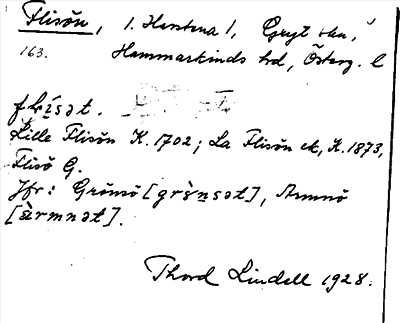 Flisön, 1. Herstena 1, Gryt skn,
163. Hammarkinds hd, Österg. l
flìsət.
Lille Flisön K. 1702; La Flisön ek, K. 1873,
Flisö G.
Jfr: Grönsö [grꞩ̀nsət], Armnö
[àrmnət].
Thord Lindell 1928.